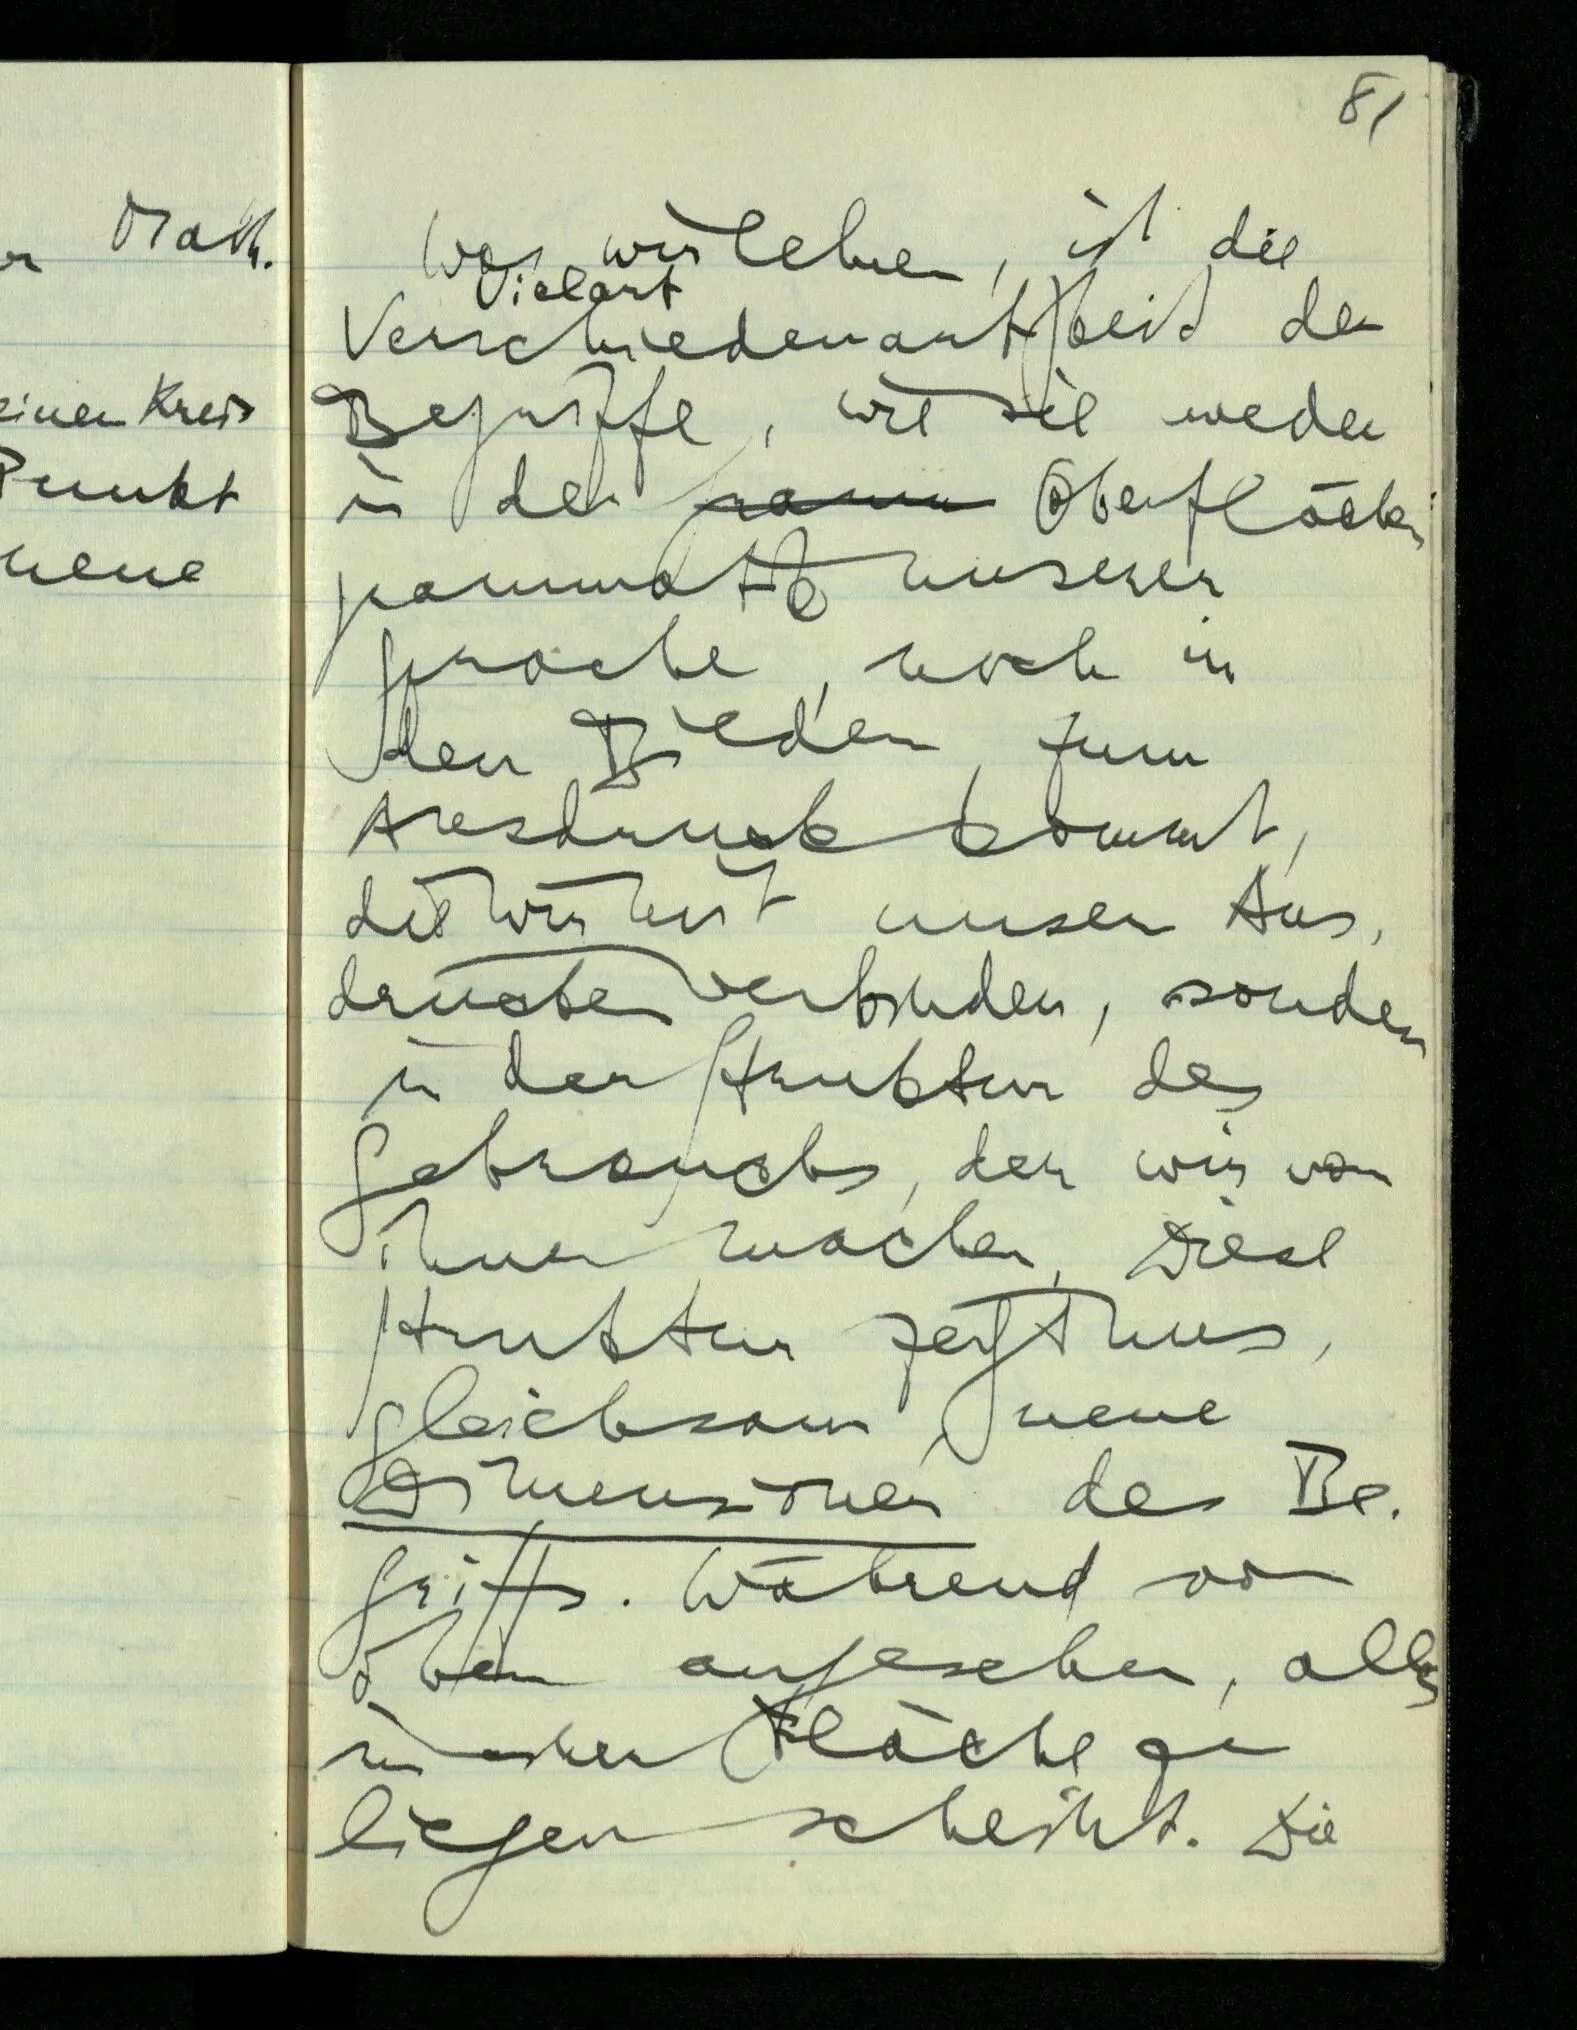 r Math.
einen Kreis
Punkt
neue
81
Was wir lehren, ist die
Vielart
Verschiedenartigkeit der
Begriffe, wie sie weder
in der Gramm Oberflächen
grammatik unserer
Sprache, noch in
den Bildern, zum
Ausdruck kommt,
die wir mit unsern Aus-
drücken verbinden, sondern
in der Struktur des
Gebrauchs, den wir von
ihnen machen. Diese
Struktur zeigt uns,
gleichsam, neue
Dimensionen des Be-
griffs. Während von
oben angesehen, alles
in einer Fläche zu
liegen scheint. Die